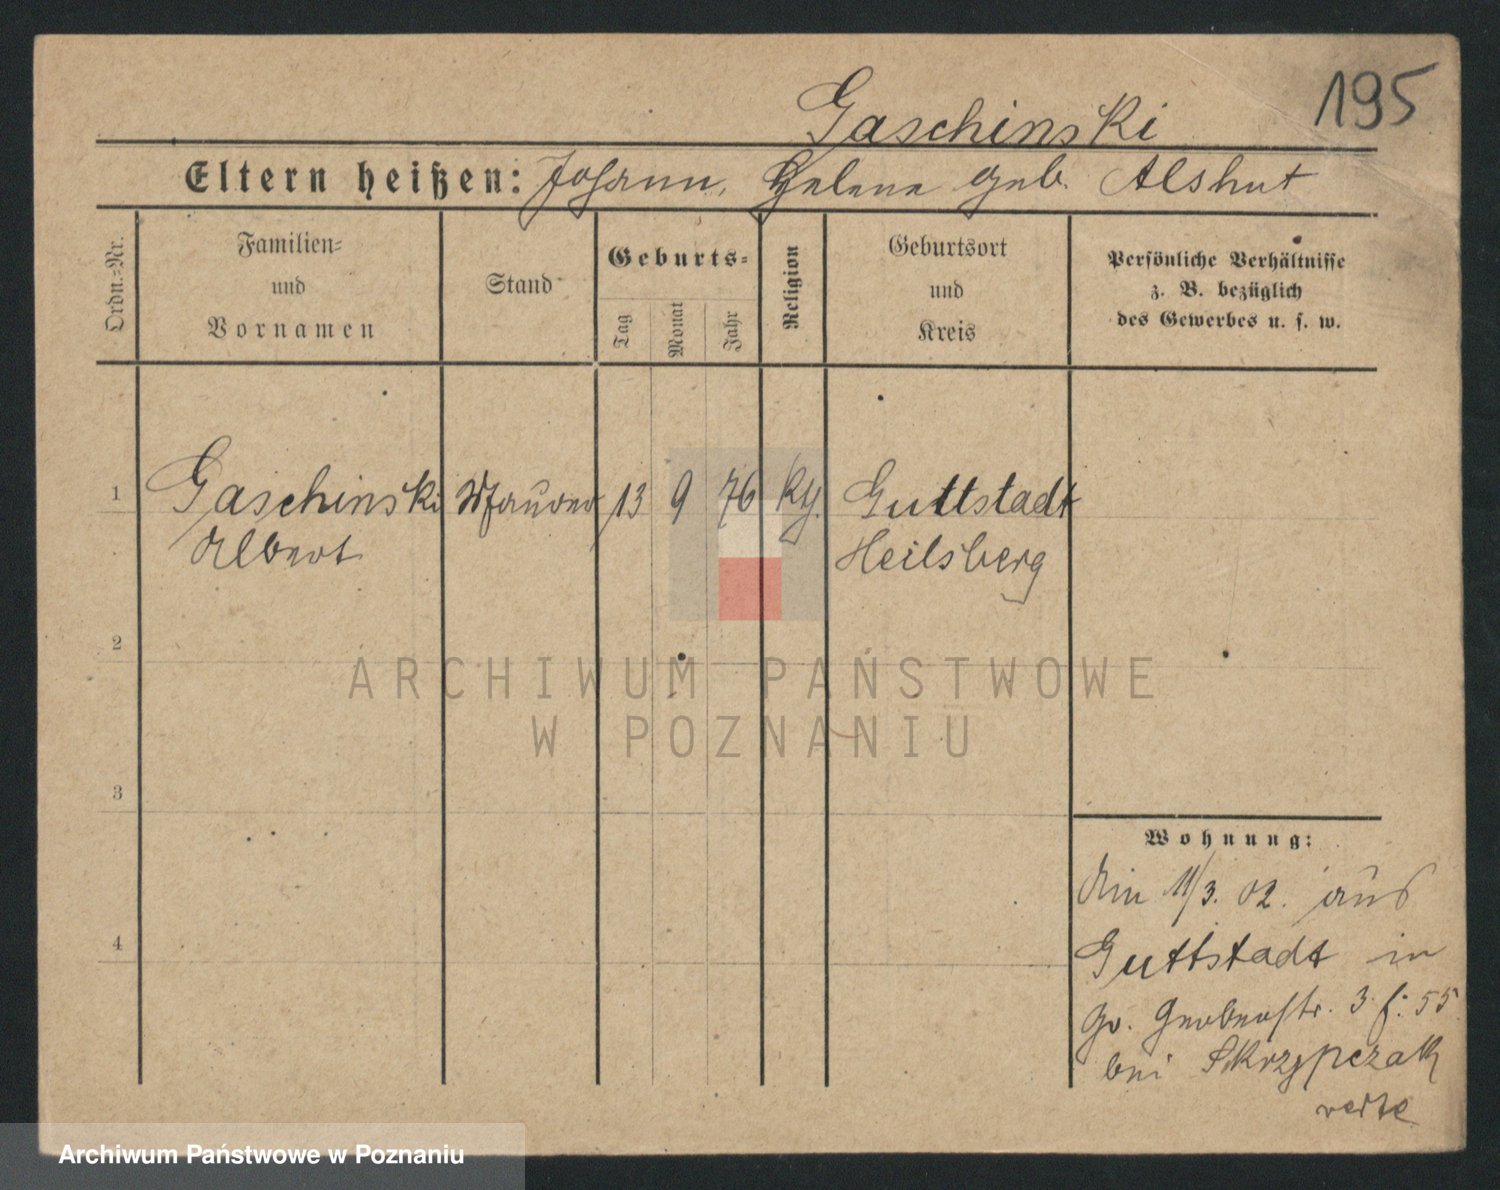 195
Gaschinski
Eltern heißen: Johann, Helene geb. Alshut
Ordn.=Nr.
Familien=
und
Vornamen
Stand
Geburts=
Tag
Monat
Jahr
Religion
Geburtsort
und
Kreis
Persönliche Verhältnisse
z. B. bezüglich
des Gewerbes u. s. w.
1 Gaschinski Maurer 13 9 76 kth. Guttstadt
Albert Heilsberg
2
ARCHIWUM PAŃSTWOWE
W POZNANIU
3
Wohnung:
Am 11/3. 02. aus
4
Guttstadt in
Gr. Gerberstr. 3 f: 55
bei Skrzypczak
verte
Archiwum Państwowe w Poznaniu